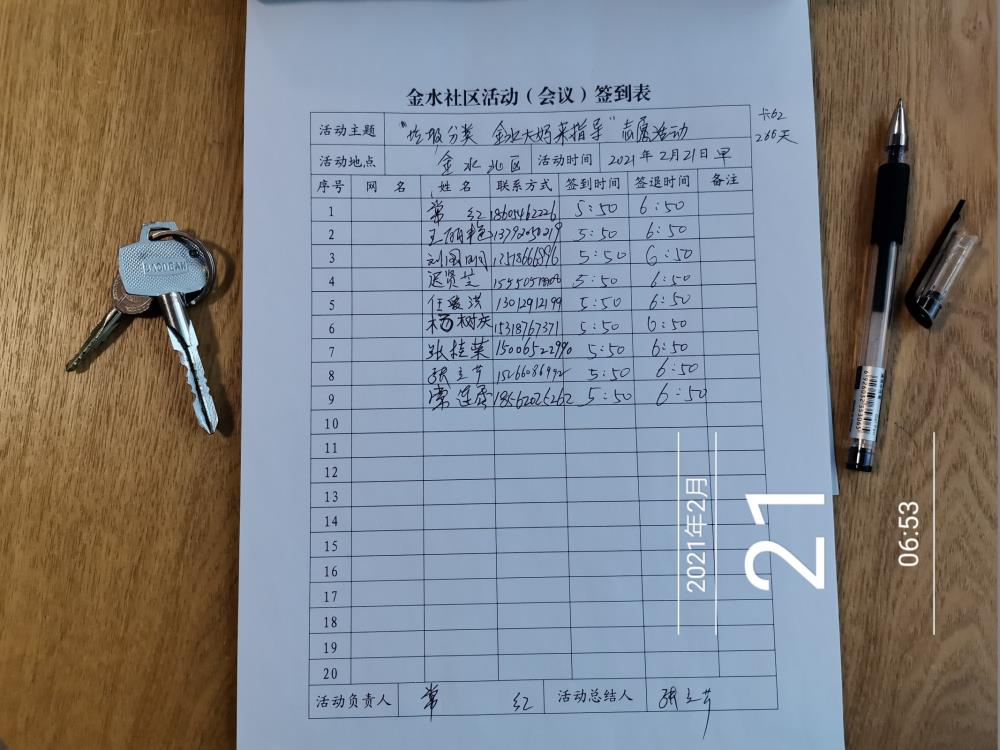 金水社区活动（会议）签到表
卡62
266天
活动主题 "垃圾分类 金水大妈来指导"志愿活动
活动地点 金水北区 活动时间 2021年2月21日早
序号 网名 姓名 联系方式 签到时间 签退时间 备注
1 常红 18605462226 5:50 6:50
2 王丽艳 13792050219 5:50 6:50
3 刘国明 5:50 6:50
4 迟贤芝 5:50 6:50
5 任爱洪 13012912199 5:50 6:50
6 杨树庆 15318767371 5:50 6:50
7 张桂荣 15006522990 5:50 6:50
8 张立芹 5:50 6:50
9 常 18562025262 5:50 6:50
10
11
12
13
14
15
16
17
18
19
20
活动负责人 常红 活动总结人 张立芹
2021年2月
21
06:53